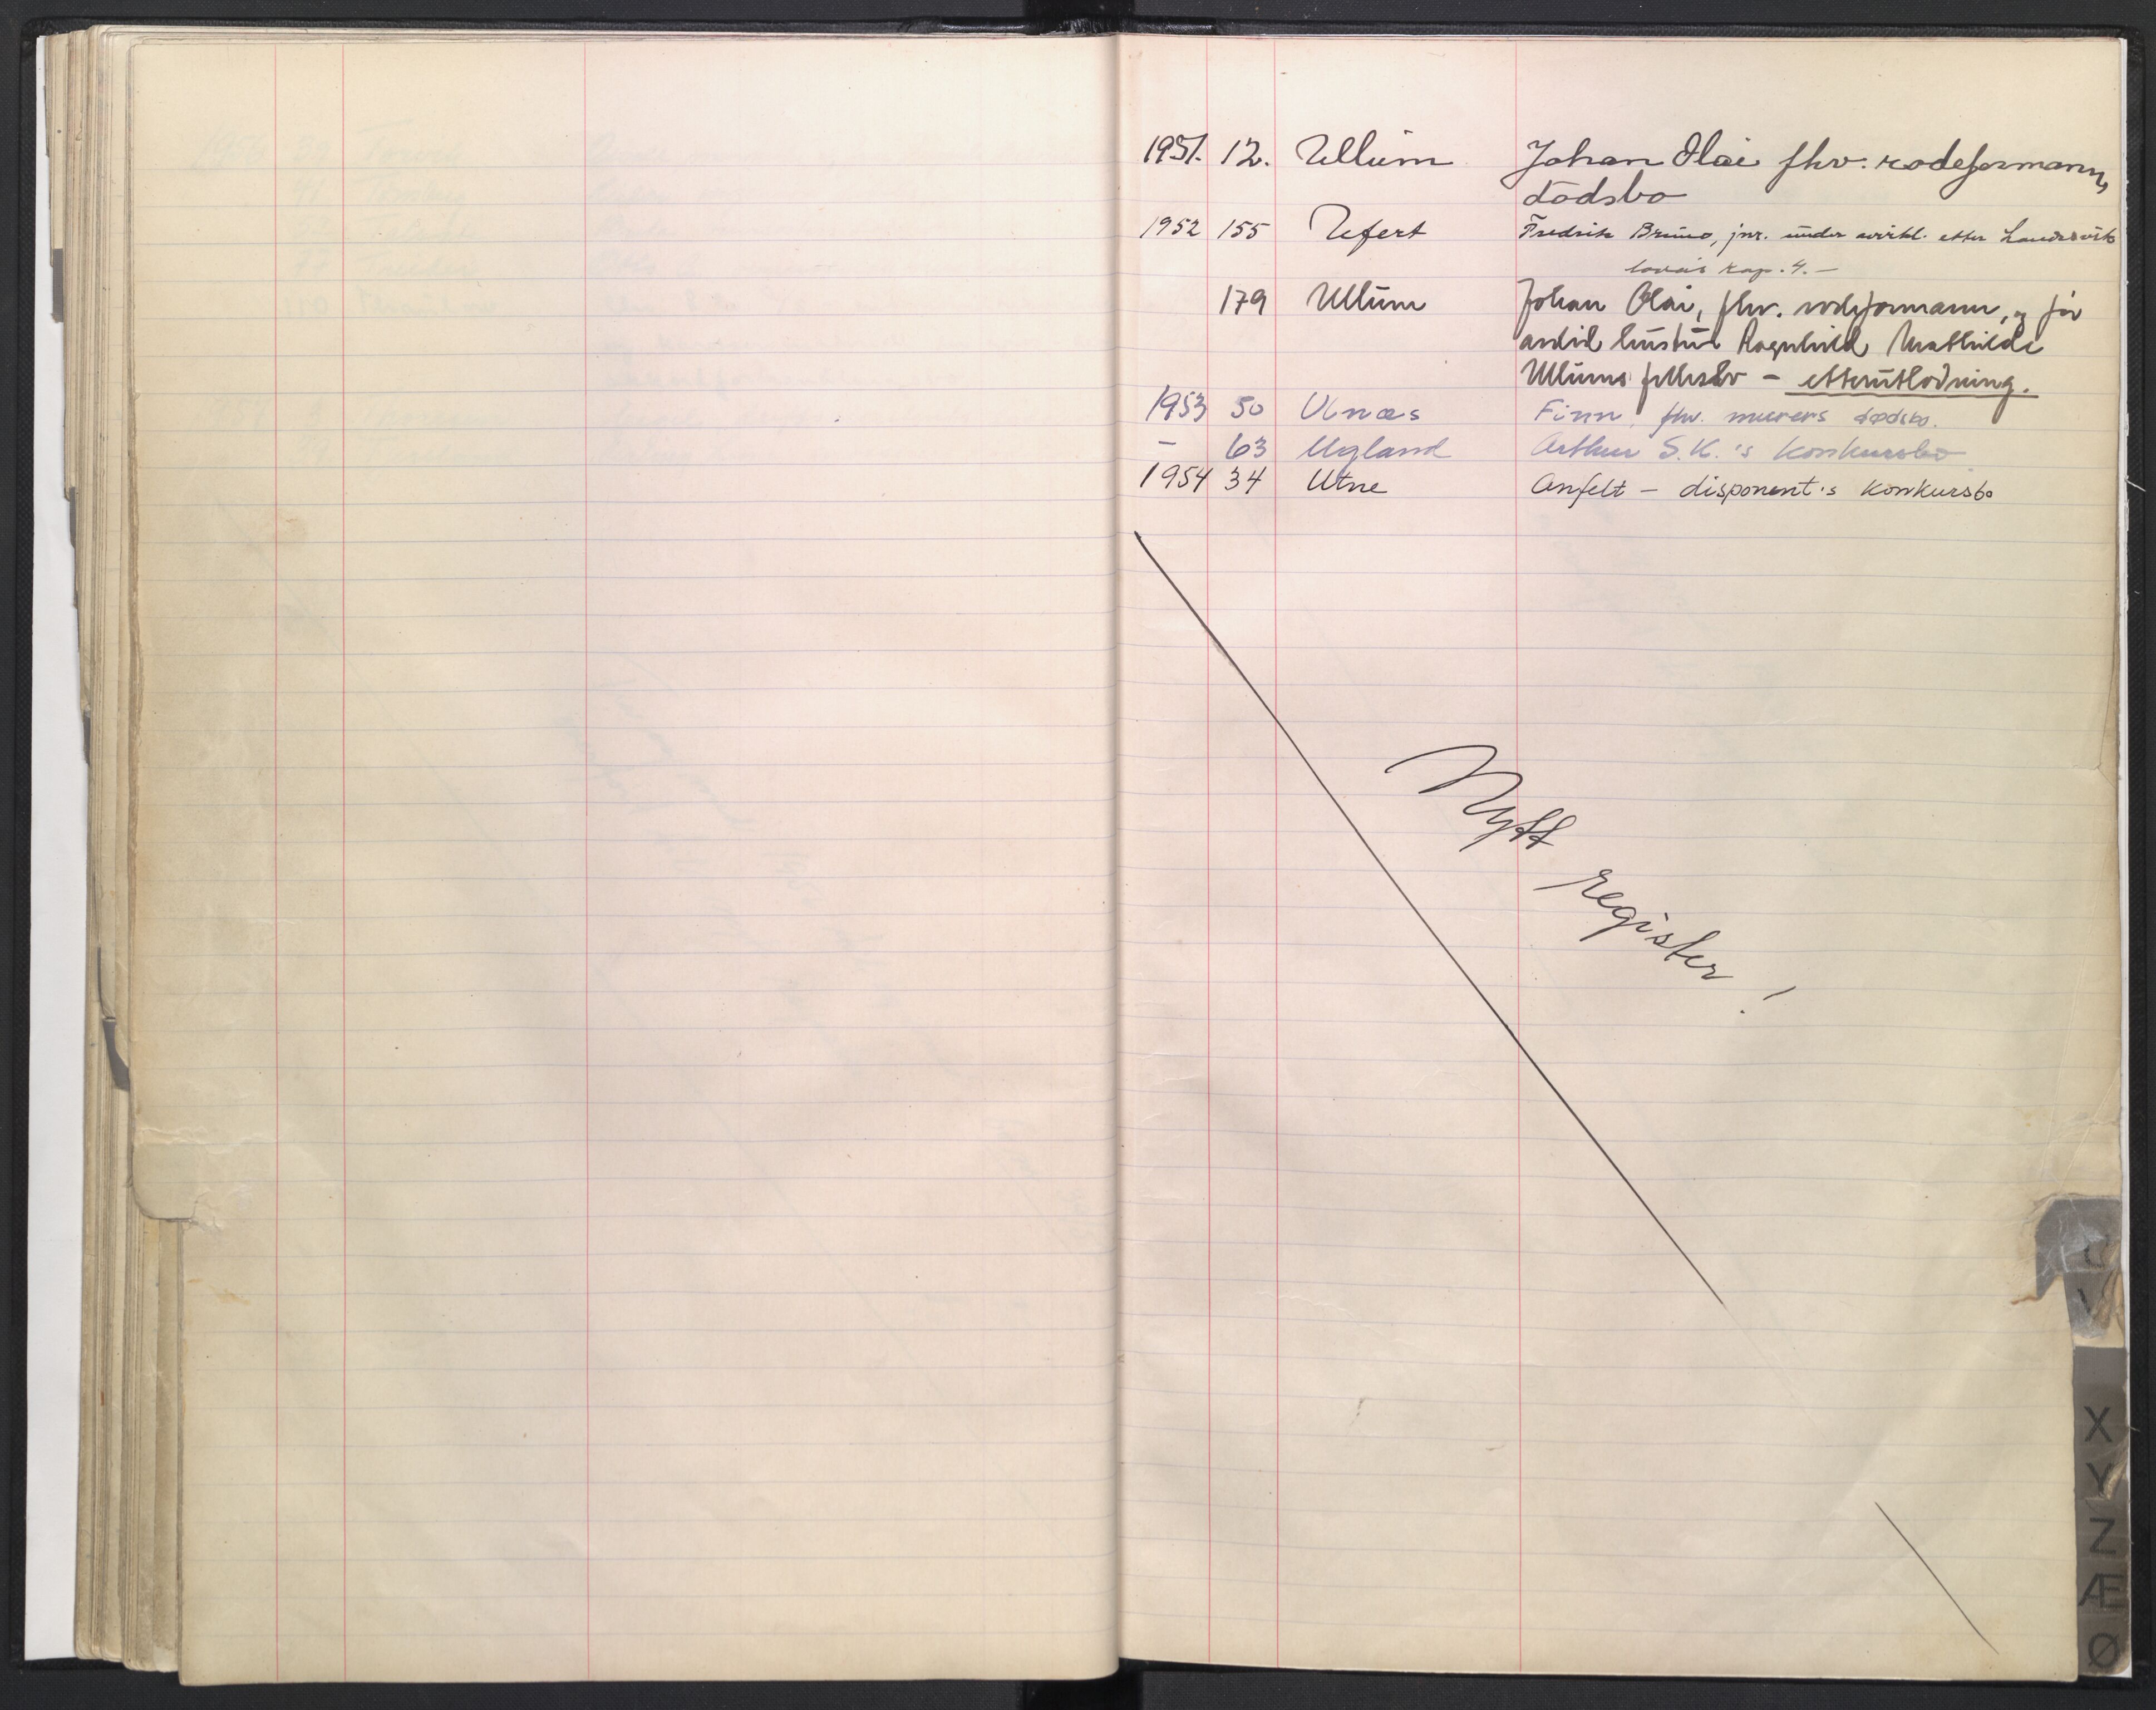 1951. 12. Ullum Johan Olai fhv. rodeformanns
dødsbo
1952 155 Ufert Fredrik Bruno, jnr. under avvikl. etter Landssvik
lovens kap. 4. —
179 Ullum Johan Olai, fhv. rodeformann, og før
avdød hustru Ragnhild Mathilde
Ullums fellesbo – etterutlodning.
1953 50 Ulnæs Finn, fhv. murers dødsbo.
– 63 Ugland Arthur S.K.'s konkursbo
1954 34 Utne Anfelt – disponent's konkursbo
Nytt
register!
U
V
X
Y
Z
Æ
Ø